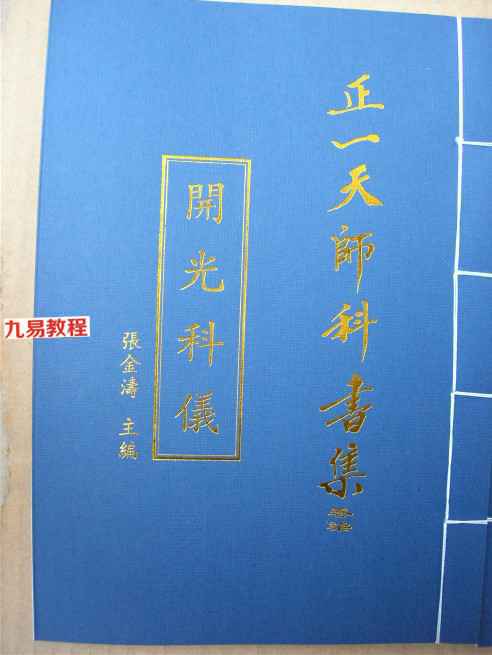 正一天師科書集
開光科儀
張金濤 主編
九易教程